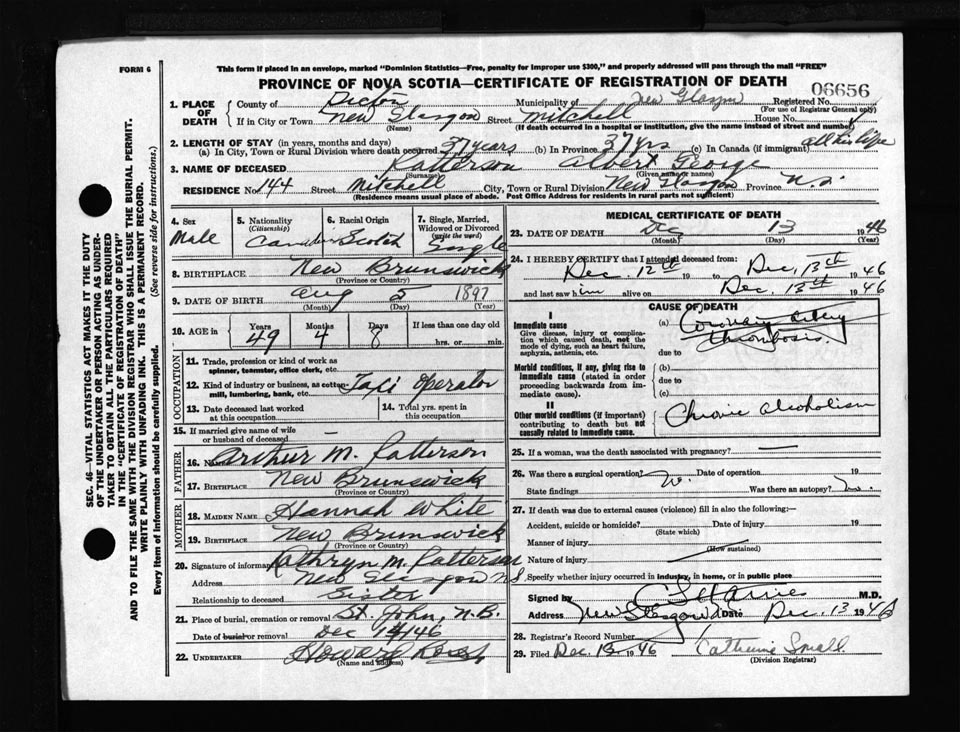 FORM 6
This form if placed in an envelope, marked "Dominion Statistics—Free, penalty for improper use $300," and properly addressed will pass through the mail "FREE"
PROVINCE OF NOVA SCOTIA—CERTIFICATE OF REGISTRATION OF DEATH
06656
1. PLACE OF DEATH
County of Pictou Municipality of New Glasgow Registered No.
(For use of Registrar General only)
If in City or Town New Glasgow Street Mitchell House No.
(Name) (If death occurred in a hospital or institution, give the name instead of street and number)
2. LENGTH OF STAY (in years, months and days)
(a) In City, Town or Rural Division where death occurred 37 years (b) In Province 37 yrs (c) In Canada (if immigrant) all his life
3. NAME OF DECEASED Patterson Albert George
(Surname) (Given name or names)
RESIDENCE No. 144 Street Mitchell City, Town or Rural Division New Glasgow Province N.S.
(Residence means usual place of abode. Post Office Address for residents in rural parts not sufficient)
4. Sex
Male
5. Nationality
(Citizenship)
Canadian
6. Racial Origin
Scotch
7. Single, Married, Widowed or Divorced
(write the word)
Single
8. BIRTHPLACE New Brunswick
(Province or Country)
9. DATE OF BIRTH Aug 5 1897
(Month) (Day) (Year)
10. AGE in
Years Months Days If less than one day old
49 4 8 hrs. or min.
OCCUPATION
11. Trade, profession or kind of work as
spinner, teamster, office clerk, etc.
12. Kind of industry or business, as cotton-
mill, lumbering, bank, etc.
Taxi Operator
13. Date deceased last worked
at this occupation
14. Total yrs. spent in
this occupation
15. If married give name of wife
or husband of deceased —
FATHER
16. Name Arthur M. Patterson
17. Birthplace New Brunswick
(Province or Country)
MOTHER
18. MAIDEN NAME Hannah White
19. BIRTHPLACE New Brunswick
(Province or Country)
20. Signature of informant Kathryn M. Patterson
Address New Glasgow N.S.
Relationship to deceased Sister
21. Place of burial, cremation or removal St. John, N.B.
Date of burial or removal Dec 14/46
22. UNDERTAKER Howard
(Name and address)
MEDICAL CERTIFICATE OF DEATH
23. DATE OF DEATH Dec 13 1946
(Month) (Day) (Year)
24. I HEREBY CERTIFY that I attended deceased from:
Dec. 12th to Dec. 13th 1946
and last saw him alive on Dec. 13th 1946
CAUSE OF DEATH
I
Immediate cause
Give disease, injury or complication which caused death, not the mode of dying, such as heart failure, asphyxia, asthenia, etc.
(a) Coronary Artery
Thrombosis.
due to
Morbid conditions, if any, giving rise to immediate cause (stated in order proceeding backwards from immediate cause).
(b)
due to
(c)
II
Other morbid conditions (if important) contributing to death but not causally related to immediate cause.
Chronic alcoholism
25. If a woman, was the death associated with pregnancy? —
26. Was there a surgical operation? No. Date of operation 19
State findings Was there an autopsy? No.
27. If death was due to external causes (violence) fill in also the following:—
Accident, suicide or homicide? Date of injury 19
(State which)
Manner of injury
(How sustained)
Nature of injury
Specify whether injury occurred in industry, in home, or in public place
Signed by M.D.
Address New Glasgow Date Dec. 13 1946
28. Registrar's Record Number
29. Filed Dec. 13 1946 Catherine Small
(Division Registrar)
SEC. 46—VITAL STATISTICS ACT MAKES IT THE DUTY
OF THE UNDERTAKER OR PERSON ACTING AS UNDER-
TAKER TO OBTAIN ALL THE PARTICULARS REQUIRED
IN THE "CERTIFICATE OF REGISTRATION OF DEATH"
AND TO FILE THE SAME WITH THE DIVISION REGISTRAR WHO SHALL ISSUE THE BURIAL PERMIT.
WRITE PLAINLY WITH UNFADING INK. THIS IS A PERMANENT RECORD.
Every item of information should be carefully supplied. (See reverse side for instructions.)